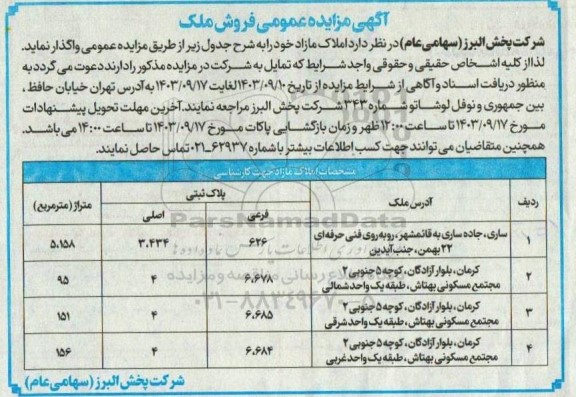 آگهی مزایده عمومی فروش ملک
شرکت پخش البرز (سهامی عام) در نظر دارد املاک مازاد خود را به شرح جدول زیر از طریق مزایده عمومی واگذار نماید.
لذا از کلیه اشخاص حقیقی و حقوقی واجد شرایط که تمایل به شرکت در مزایده مذکور را دارند دعوت می گردد به
منظور دریافت اسناد و آگاهی از شرایط مزایده از تاریخ ۱۴۰۳/۰۹/۱۰ لغایت ۱۴۰۳/۰۹/۱۷ به آدرس تهران خیابان حافظ،
بین جمهوری و نوفل لوشاتو شماره ۳۴۳ شرکت پخش البرز مراجعه نمایند. آخرین مهلت تحویل پیشنهادات
مورخ ۱۴۰۳/۰۹/۱۷ تا ساعت ۱۲:۰۰ ظهر و زمان بازگشایی پاکات مورخ ۱۴۰۳/۰۹/۱۷ تا ساعت ۱۴:۰۰ می باشد.
همچنین متقاضیان می توانند جهت کسب اطلاعات بیشتر با شماره ۶۲۹۳۷-۰۲۱ تماس حاصل نمایند.
مشخصات املاک مازاد جهت کارشناسی
ردیف آدرس ملک پلاک ثبتی متراژ (مترمربع)
فرعی اصلی
۱ ساری، جاده ساری به قائمشهر، روبه روی فنی حرفه ای ۶۲۶ ۳.۴۳۴ ۵.۱۵۸
۲۲ بهمن، جنب آبدین
۲ کرمان، بلوار آزادگان، کوچه ۵ جنوبی ۲ ۶.۶۷۸ ۴ ۹۵
مجتمع مسکونی بهتاش، طبقه یک واحد شمالی
۳ کرمان، بلوار آزادگان، کوچه ۵ جنوبی ۲ ۶.۶۸۵ ۴ ۱۵۱
مجتمع مسکونی بهتاش، طبقه یک واحد شرقی
۴ کرمان، بلوار آزادگان، کوچه ۵ جنوبی ۲ ۶.۶۸۴ ۴ ۱۵۶
مجتمع مسکونی بهتاش، طبقه یک واحد غربی
شرکت پخش البرز (سهامی عام)
ParsNamadData